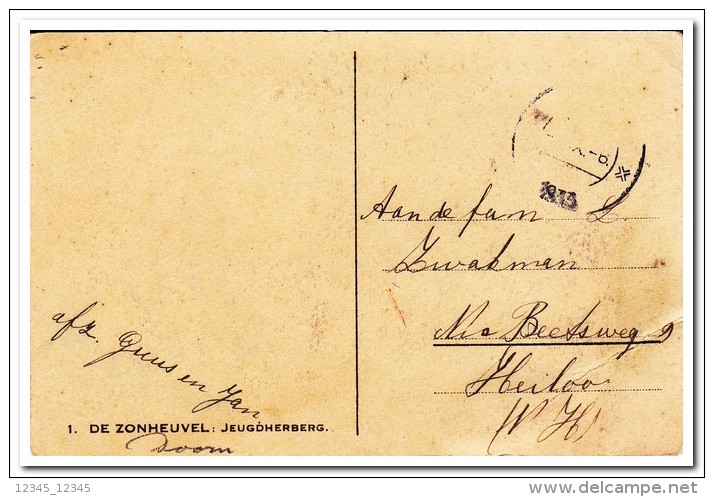 1933
Aan de fam L.
Zwakman
Nic Beetsweg 9
Heiloo
(N H)
afz. Guus en Jan
1. DE ZONHEUVEL: JEUGDHERBERG.
Doorn
12345_12345
delcampe.net